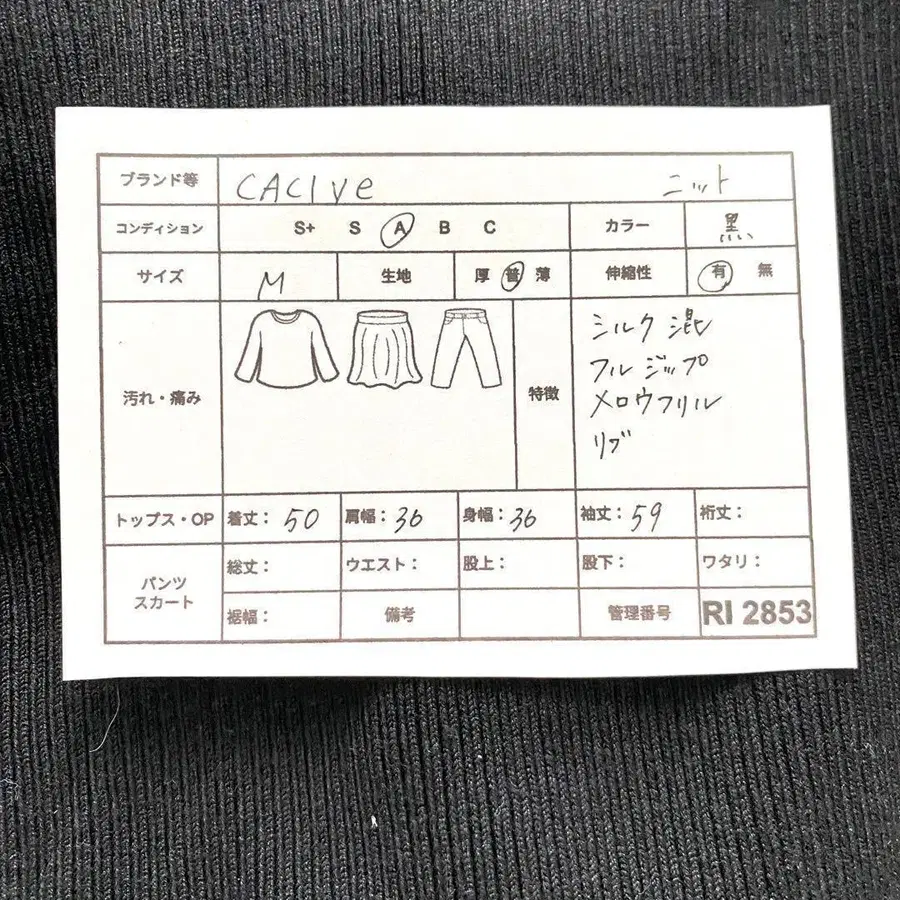 ブランド等 CACIve ニット
コンディション S+ S A B C カラー 黒
サイズ M 生地 厚 普 薄 伸縮性 有 無
汚れ・痛み 特徴
シルク混
フルジップ
メロウフリル
リブ
トップス・OP 着丈: 50 肩幅: 36 身幅: 36 袖丈: 59 裄丈:
パンツ
スカート
総丈: ウエスト: 股上: 股下: ワタリ:
裾幅: 備考 管理番号 RI 2853